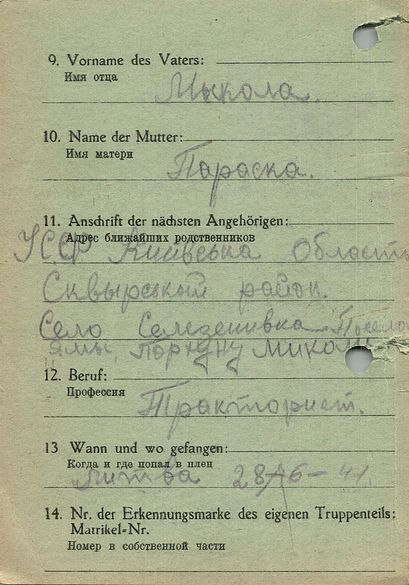 9. Vorname des Vaters:
Имя отца
Мыкола.
10. Name der Mutter:
Имя матери
Параска.
11. Anschrift der nächsten Angehörigen:
Адрес ближайших родственников
УССР Київська Область
Сквырський район.
Село Селезенивка
Микола
12. Beruf:
Профессия
Тракторист.
13 Wann und wo gefangen:
Когда и где попал в плен
Литва 28/6-41.
14. Nr. der Erkennungsmarke des eigenen Truppenteils:
Matrikel-Nr.
Номер в собственной части